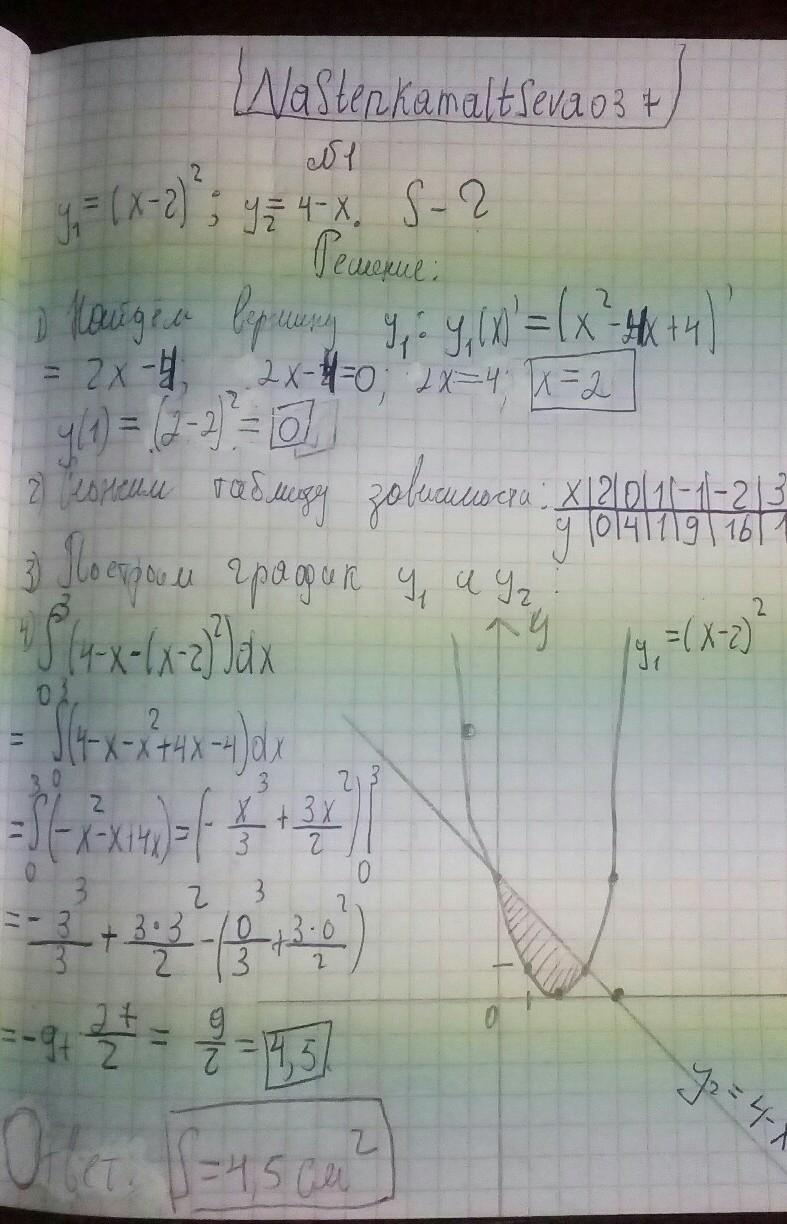 NaStenkamaltSeva03 7
№1
y₁ = (x-2)²; y₂ = 4-x. S - ?
Решение:
1) Найдём вершину y₁: y₁(x)' = (x²-4x+4)'
= 2x-4; 2x-4=0; 2x=4; x=2
y(1) = (2-2)² = 0
2) таблицу зависимости: x|2|0|1|-1|-2|3
y|0|4|1|9|16|1
3) Построим график y₁ и y₂:
4) ∫₀³(4-x-(x-2)²)dx
y
y₁=(x-2)²
= ∫₀³(4-x-x²+4x-4)dx
= ∫₀³(-x²-x+4x) = (-x³/3 + 3x²/2)|₀³
= -3³/3 + 3·3²/2 - (0³/3 + 3·0²/2)
0 1
= -9+ 27/2 = 9/2 = 4,5
y₂ = 4-x
Ответ: S=4,5 см²